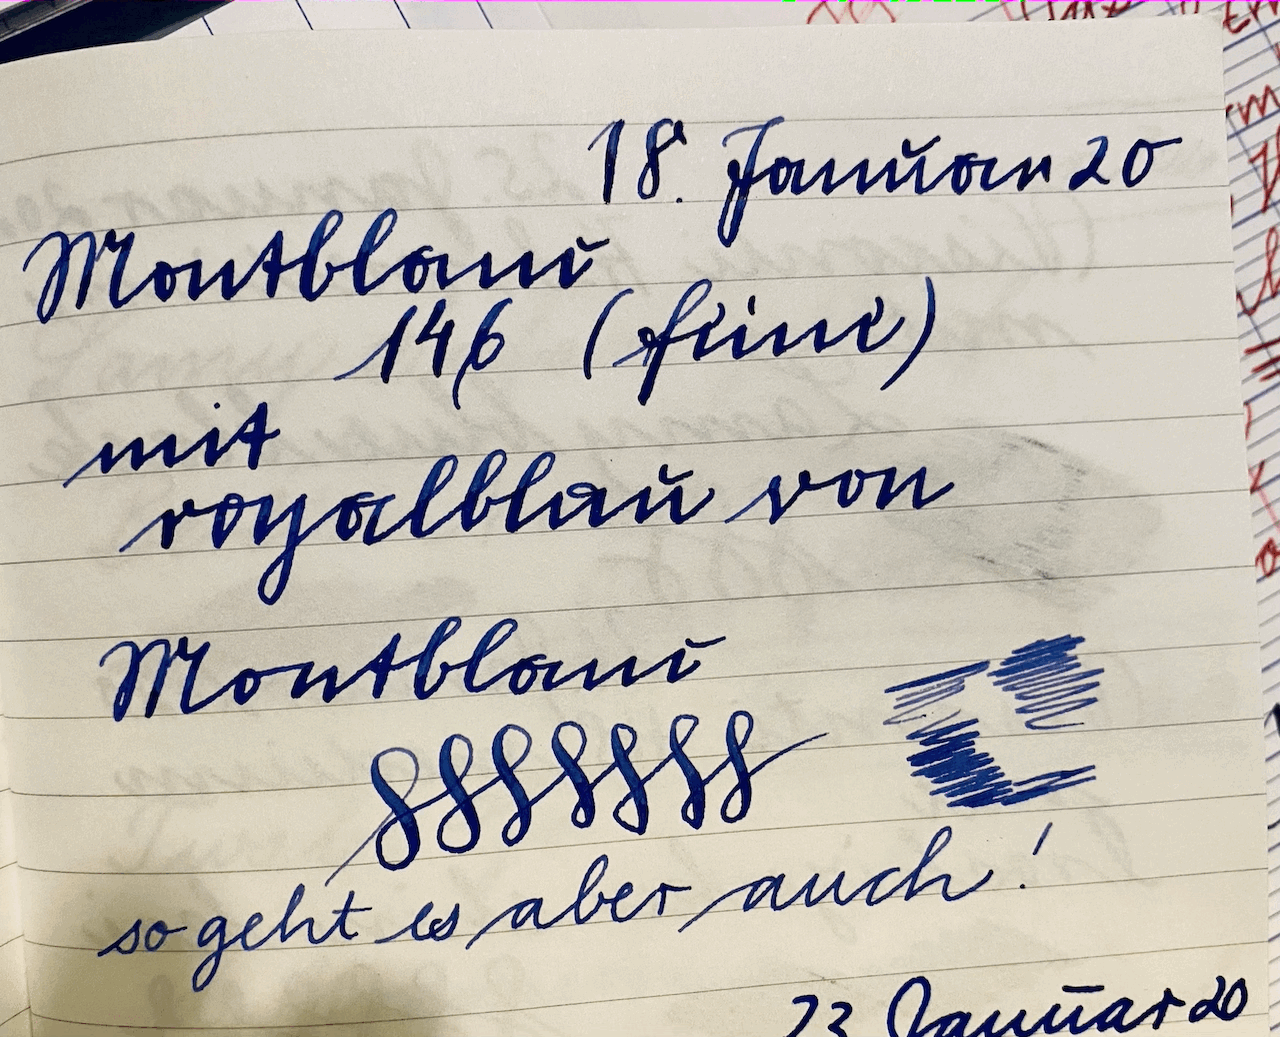 18. Januar 20
Montblanc
146 (feine)
mit
royalblau von
Montblanc
so geht es aber auch!
23 Januar 20